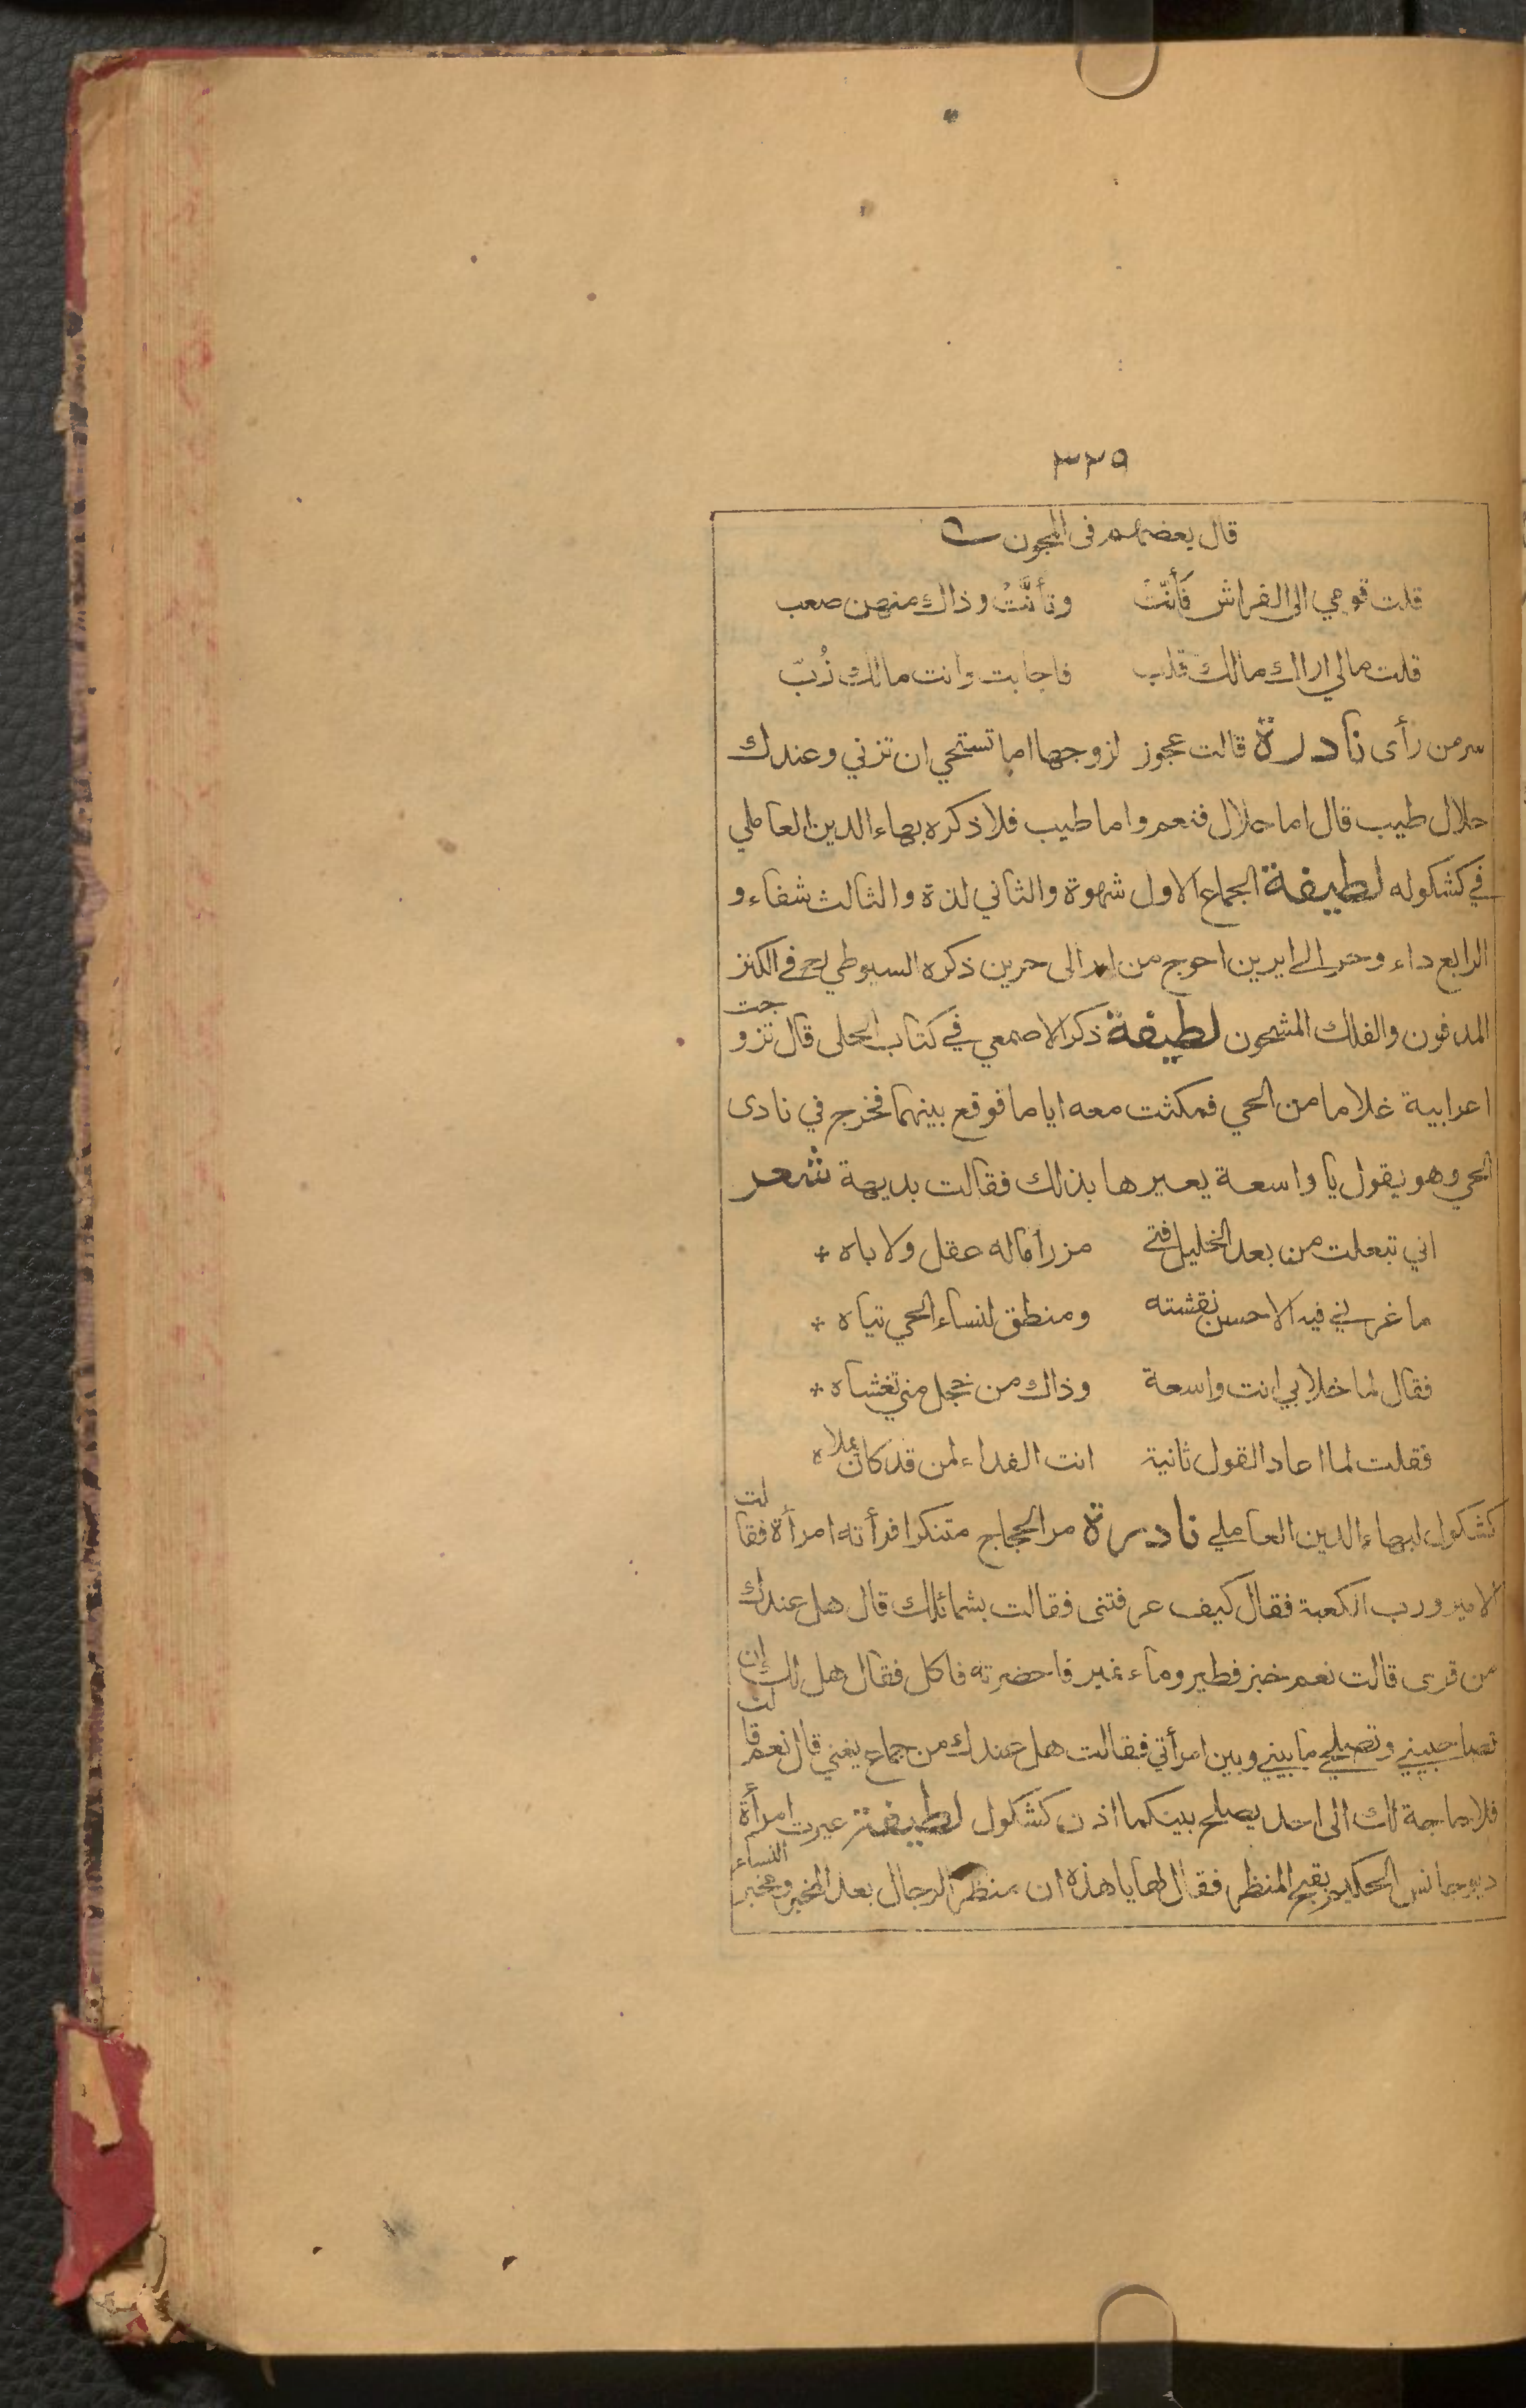 ٣٢٥
قال بعضهم فى المجون
قلت قومي الى الفراش فَأَنَّتْ وتأنَّتُ وذاك منهن صعب
قلت مالي اراك مالك قلب فاجابت وانت مالك زُبّ
سر من رأى نادرة قالت عجوز لزوجها اما تستحي ان تزني وعندك
حلال طيب قال اما حلال فنعم واما طيب فلا ذكره بهاء الدين العاملي
في كشكوله لطيفة الجماع الاول شهوة والثاني لذة والثالث شفاء و
الرابع داء وحر الى ايرين احوج من اير الى حرين ذكره السيوطي في الكنز
المدفون والفلك المشحون لطيفة ذكر الاصمعي في كتاب الحلى قال تزوجت
اعرابية غلاما من الحي فمكثت معه اياما فوقع بينهما فخرج في نادى
الحي وهو يقول يا واسعة يعيرها بذلك فقالت بديهة شعر
اني تبعلت من بعد الخليل فتى مزرأ ماله عقل ولا باه *
ما غرني فيه الا حسن نقشته ومنطق لنساء الحي تياه *
فقال لما خلا بي انت واسعة وذاك من خجل مني تغشاه *
فقلت لما اعاد القول ثانية انت الفداء لمن قد كان يملاه
كشكول لبهاء الدين العاملي نادرة مر الحجاج متنكرا فرأته امرأة فقالت
الامير ورب الكعبة فقال كيف عرفتنى فقالت بشمائلك قال هل عندك
من قرى قالت نعم خبز فطير وماء نمير فاحضرته فاكل فقال هل لك إن
تصاحبيني وتصلحي مابيني وبين امرأتي فقالت هل عندك من جماع يغني قال نعم قالت
فلا حاجة لك الى احد يصلح بينكما اذن كشكول لطيفة عيرت امرأة
ديوجانس الحكيم بقبح المنظر فقال لها يا هذه ان منظر الرجال بعد المخبر ومخبر النساء